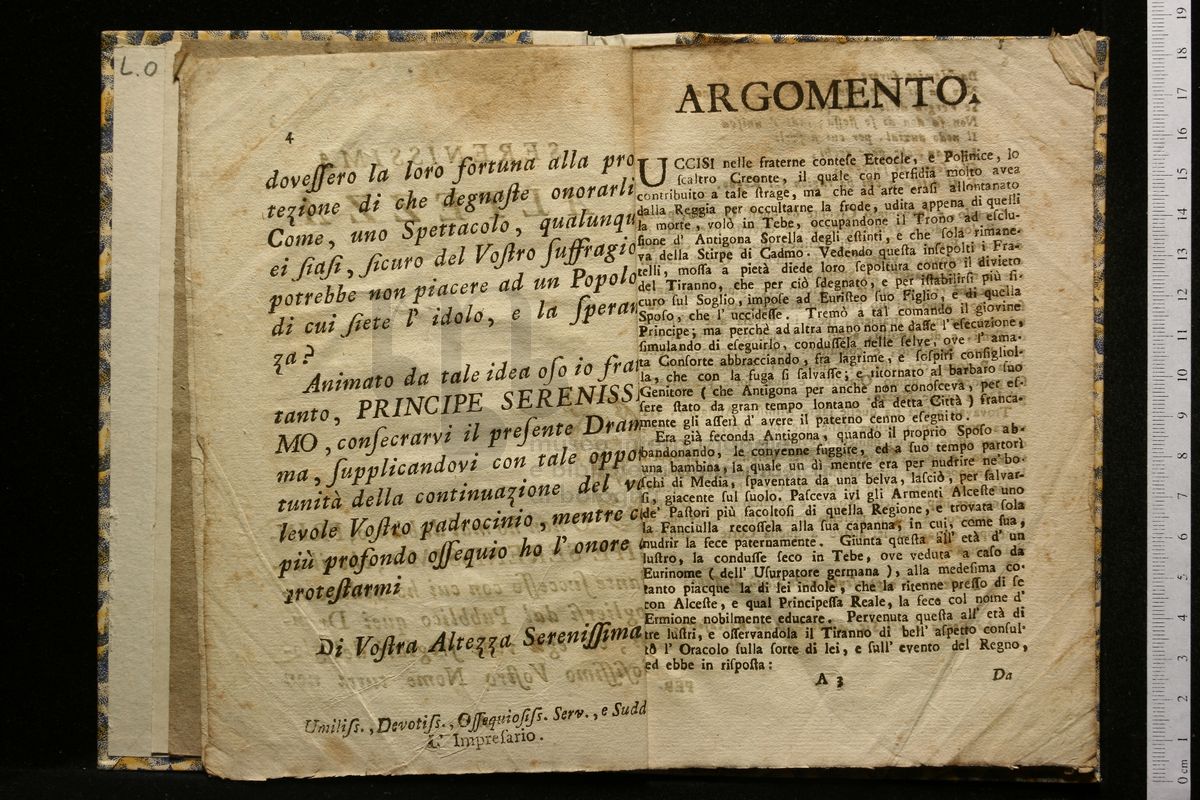 L.O
4
dovessero la loro fortuna alla pro
tezione di che degnaste onorarli
Come, uno Spettacolo, qualunqu
ei siasi, sicuro del Vostro suffragio
potrebbe non piacere ad un Popolo
di cui siete l' idolo, e la speran
za?
Animato da tale idea oso io fra
tanto, PRINCIPE SERENISS
MO, consecrarvi il presente Dram
ma, supplicandovi con tale oppo
tunità della continuazione del va
levole Vostro padrocinio, mentre c
più profondo ossequio ho l' onore
protestarmi
Di Vostra Altezza Serenissima
Umiliss., Devotiss., Ossequiosiss. Serv., e Sudd
L' Impresario.
ARGOMENTO.
UCCISI nelle fraterne contese Eteocle, e Polinice, lo
scaltro Creonte, il quale con perfidia molto avea
contribuito a tale strage, ma che ad arte erasi allontanato
dalla Reggia per occultarne la frode, udita appena di quelli
la morte, volò in Tebe, occupandone il Trono ad esclu-
sione d' Antigona Sorella degli estinti, e che sola rimane-
va della Stirpe di Cadmo. Vedendo questa insepolti i Fra-
telli, mossa a pietà diede loro sepoltura contro il divieto
del Tiranno, che per ciò sdegnato, e per istabilirsi più si-
curo sul Soglio, impose ad Euristeo suo Figlio, e di quella
Sposo, che l' uccidesse. Tremò a tal comando il giovine
Principe; ma perchè ad altra mano non ne dasse l' esecuzione,
simulando di eseguirlo, condussela nelle selve, ove l' ama-
ta Consorte abbracciando, fra lagrime, e sospiri consigliol-
la, che con la fuga si salvasse; e ritornato al barbaro suo
Genitore ( che Antigona per anche non conosceva, per es-
sere stato da gran tempo lontano da detta Città ) franca-
mente gli asserì d' avere il paterno cenno eseguito.
Era già feconda Antigona, quando il proprio Sposo ab-
bandonando, le convenne fuggire, ed a suo tempo partorì
una bambina, la quale un dì mentre era per nudrire ne' bo-
schi di Media, spaventata da una belva, lasciò, per salvar-
si, giacente sul suolo. Pasceva ivi gli Armenti Alceste uno
de' Pastori più facoltosi di quella Regione, e trovata sola
la Fanciulla recossela alla sua capanna, in cui, come sua,
nudrir la fece paternamente. Giunta questa all' età d' un
lustro, la condusse seco in Tebe, ove veduta a caso da
Eurinome ( dell' Usurpatore germana ), alla medesima co-
tanto piacque la di lei indole, che la ritenne presso di se
con Alceste, e qual Principessa Reale, la fece col nome d'
Ermione nobilmente educare. Pervenuta questa all' età di
tre lustri, e osservandola il Tiranno di bell' aspetto consul-
tò l' Oracolo sulla sorte di lei, e sull' evento del Regno,
ed ebbe in risposta:
A 3
Da